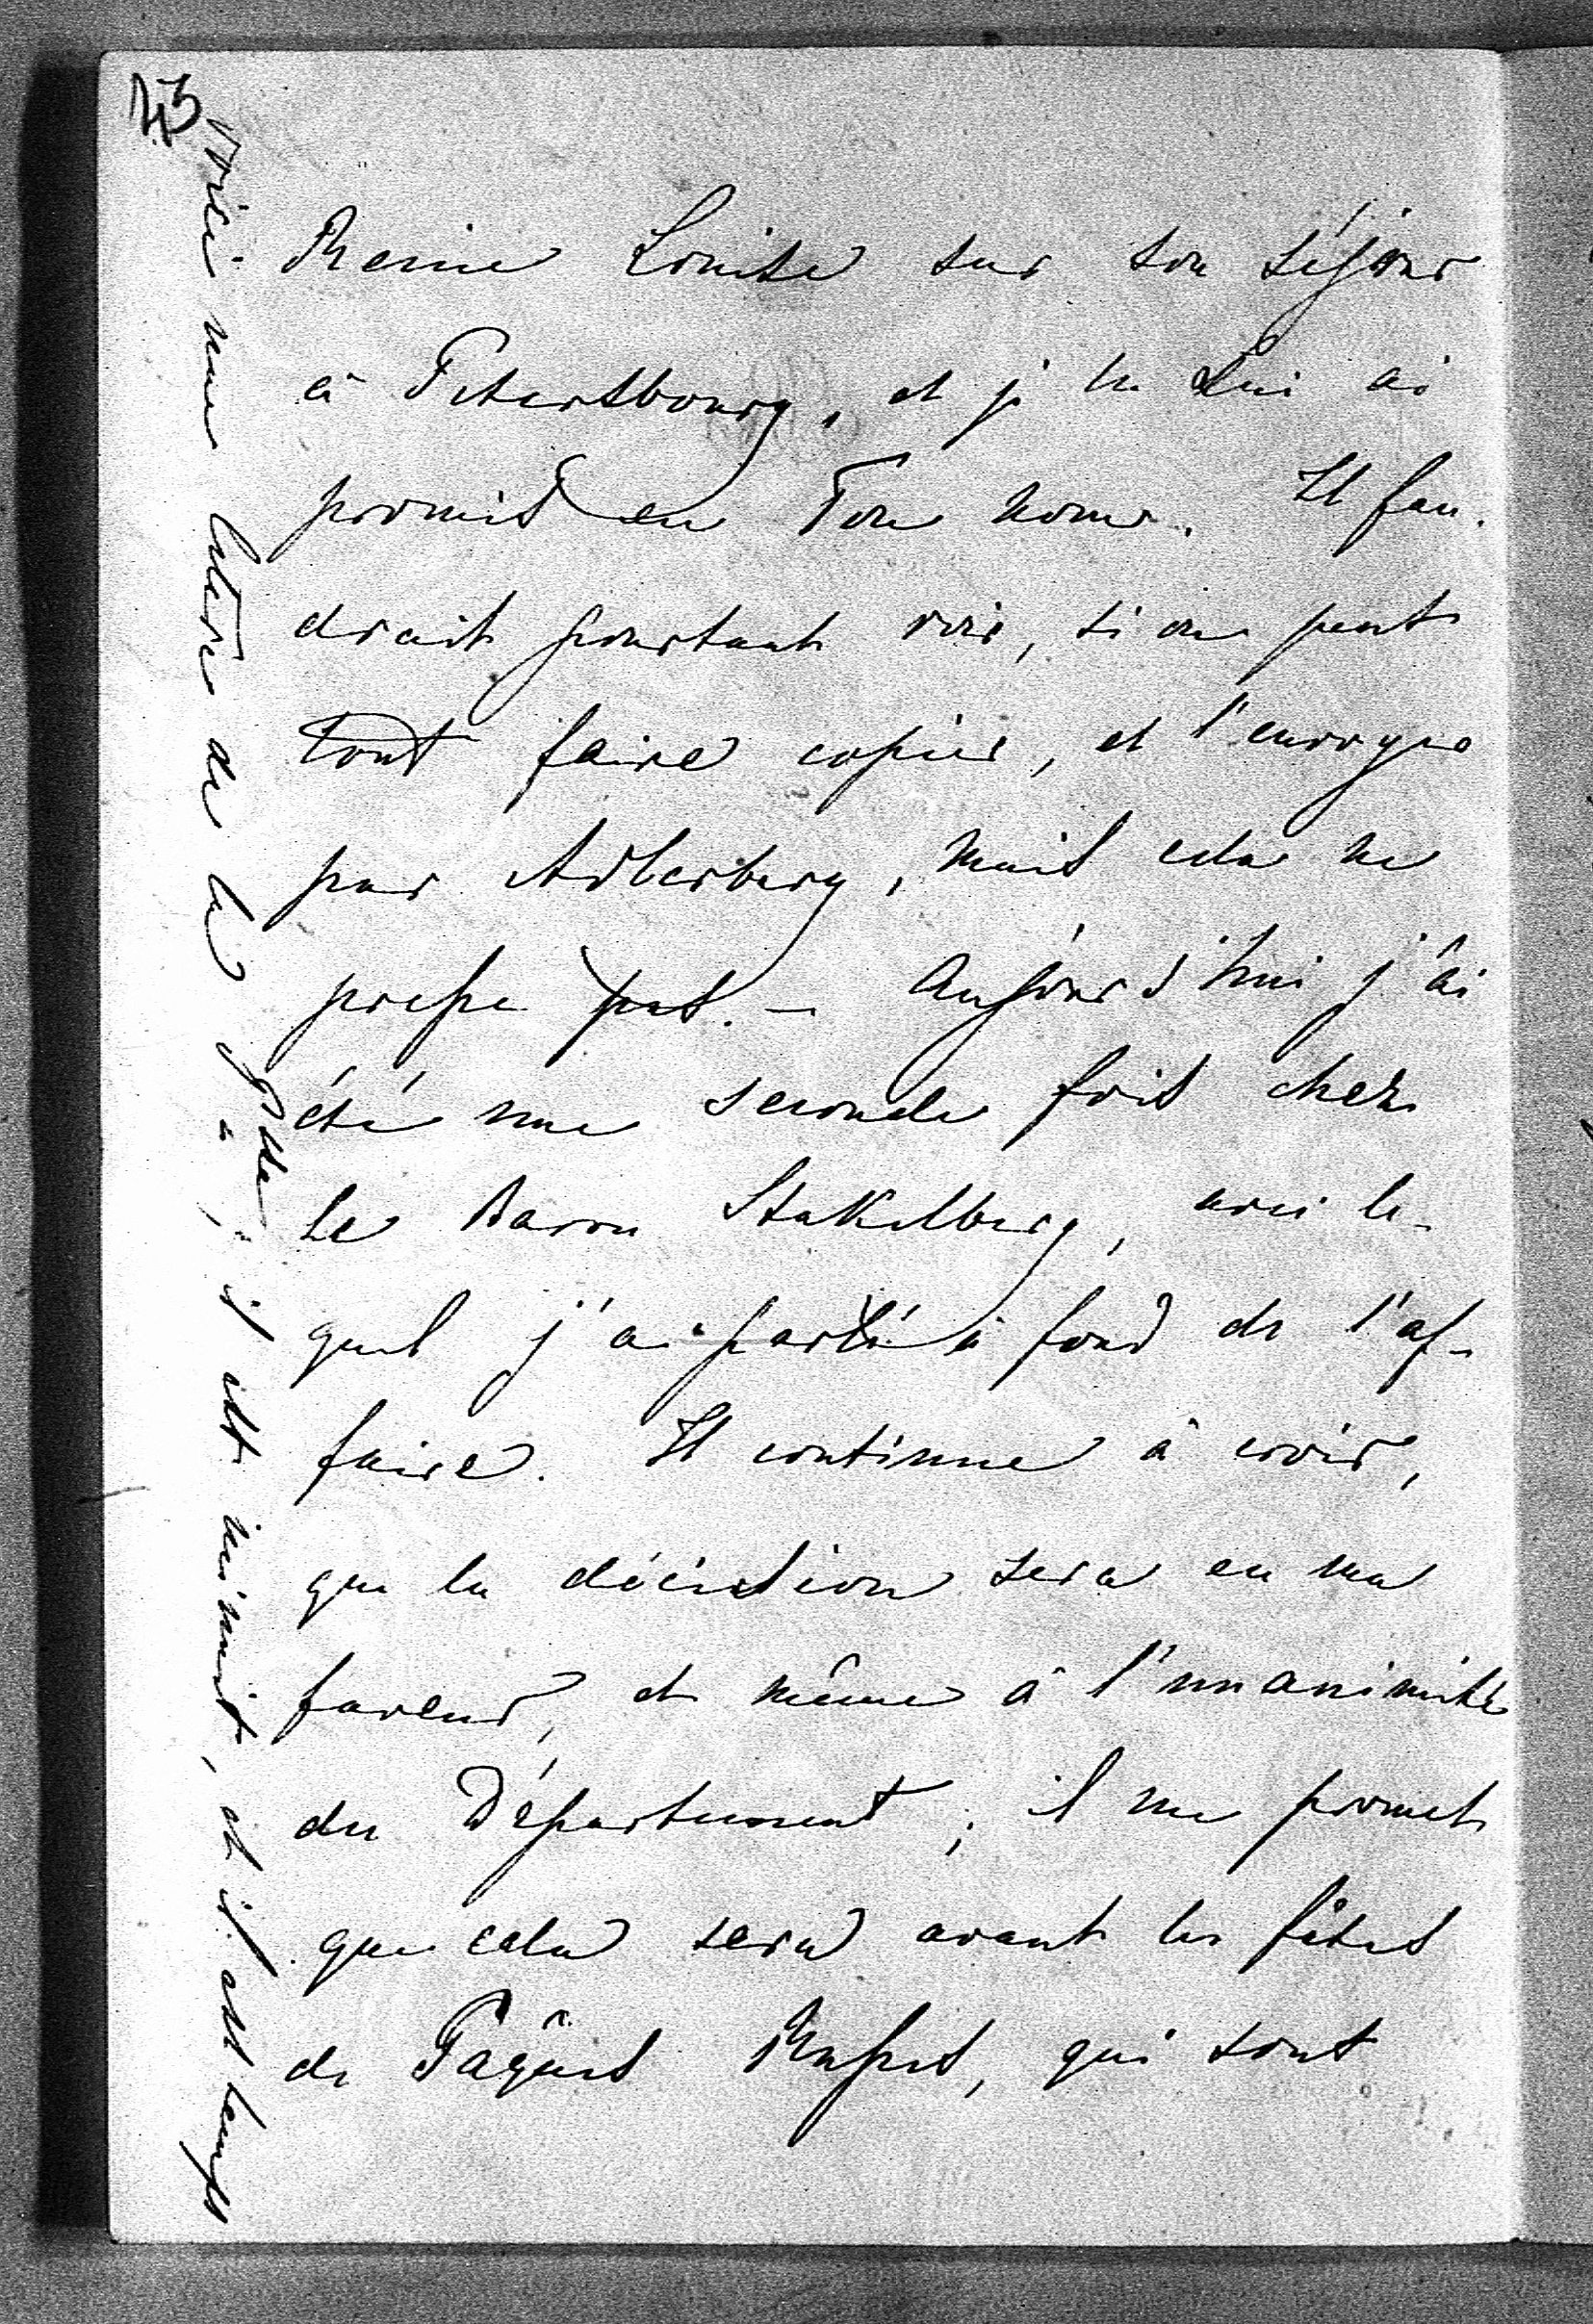 43
Reine Louise sur son séjour
à Petersbourg, et je le Lui ai
promis en Ton nom. Il fau-
drait pourtant voir, si on peut
tout faire copier, et l'envoyer
par Adlerberg, mais cela ne
presse pas. – Aujourd'hui j'ai
été une seconde fois chez
le Baron Stakelberg, avec le-
quel j'ai parlé à fond de l'af-
faire. Il continue à croir,
que la décision sera en ma
faveur, et même à l'unanimité
du Département; il me promet
que cela sera avant les fêtes
de Pâques Russes, qui sont
Voici une lettre de la gde ; il est minuit, et il est temps